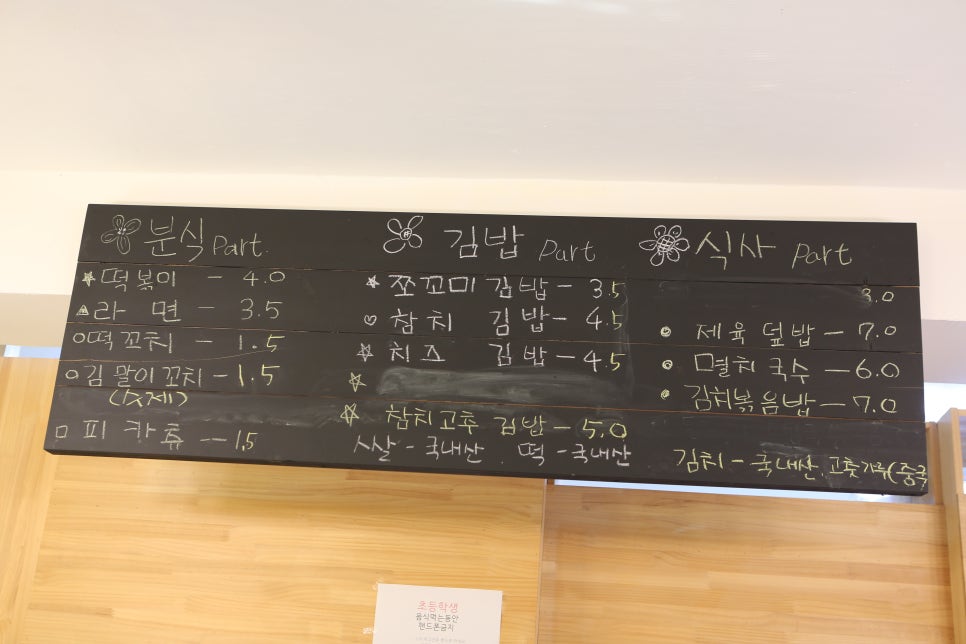 분식 Part.
떡볶이 - 4.0
라면 - 3.5
떡꼬치 - 1.5
김말이꼬치 - 1.5
(수제)
피카츄 - 1.5
김밥 Part
쪼꼬미 김밥 - 3.5
참치 김밥 - 4.5
치즈 김밥 - 4.5
참치고추 김밥 - 5.0
쌀 - 국내산. 떡 - 국내산
식사 Part
3.0
제육덮밥 - 7.0
멸치국수 - 6.0
김치볶음밥 - 7.0
김치 - 국내산. 고춧가루(중국
초등학생
음식먹는동안
핸드폰금지